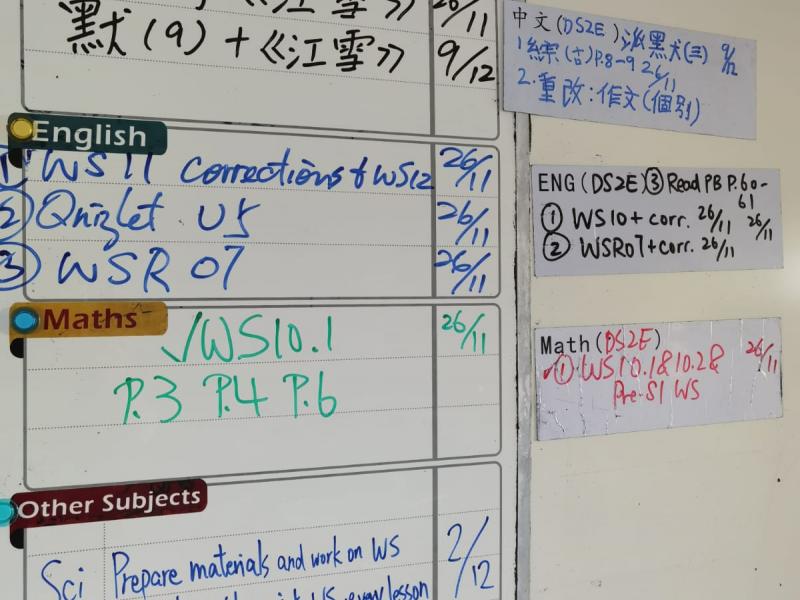 26/11
默(9)+《江雪》 9/12
English
① WS 11 corrections & WS12 26/11
② Quizlet U5 26/11
③ WSR 07 26/11
Maths
✓WS10.1 26/11
P.3 P.4 P.6
Other Subjects
Sci Prepare materials and work on WS 2/12
lesson
中文(DS2E) 派黑犬(三) 9/12
1 (古)P.8-9 26/11
2.重改:作文(個別)
ENG (DS2E) ③ Read PB P.60-
61
① WS10+corr. 26/11 26/11
② WSR07+corr. 26/11
Math(DS2E)
✓① WS10.1&10.2& 26/11
Pre-S1 WS